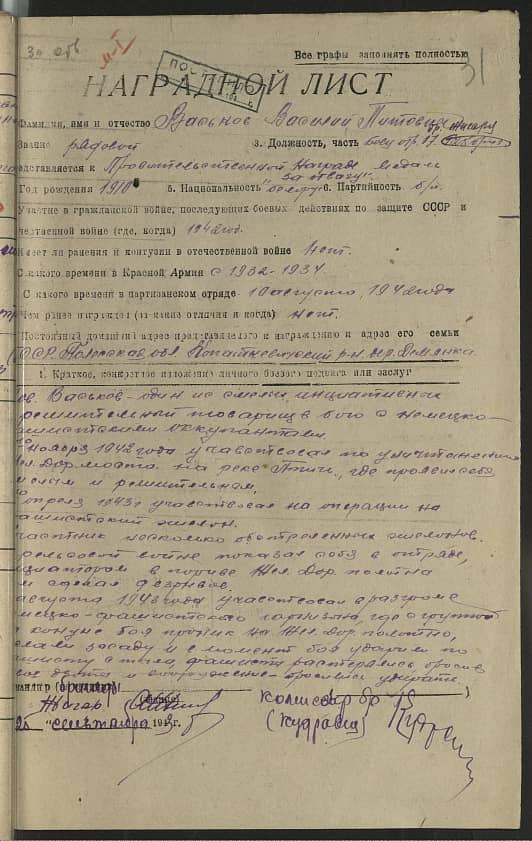 30 обв
31
Все графы заполнять полностью
НАГРАДНОЙ ЛИСТ
Фамилия, имя и отчество Васьков Василий Титович
Звание рядовой 3. Должность, часть боец отр. 17
представляется к Правительственной Награде медали
за отвагу
Год рождения 1910 5. Национальность белор. 6. Партийность б/п
Участие в гражданской войне, последующих боевых действиях по защите СССР и
отечественной войне (где, когда) 1942 год.
Имеет ли ранения и контузии в отечественной войне Нет.
С какого времени в Красной Армии с 1932-1934
С какого времени в партизанском отряде 10 августа, 1942 года
Чем ранее награжден (за какие отличия и когда) Нет.
Постоянный домашний адрес представляемого к награждению и адрес его семьи
БССР. Полесская обл Копаткевичский р-н
1. Краткое, конкретное изложение личного боевого подвига или заслуг
тов. Васьков - один из смелых, инициативных
решительный товарищ в бою с немецко-
фашистскими оккупантами
Ноября 1942 года участвовал по уничтожению
жел. Дор. моста на реке Птичь, где проявил себя
смелым и решительным.
апреля 1943г участвовал на операции на
фашистский эшелон.
участник несколько обстрелянных эшелонов.
В рельсовой войне показал себя в отряде,
инициатором в подрыве Жел. Дор. полотна
и сделал 9 взрывов.
августа 1943 года участвовал в разгроме
немецко-фашистского гарнизона, где с группой
в конце боя проник на Жел. Дор. полотно,
сделали засаду и в момент боя ударили по
фашисту с тыла, фашисты растерялись, бросив
и вооружение бросились убегать.
командир бригады
Жигарь
комиссар бр
(Кудравец)
25 "сентября 1943г.